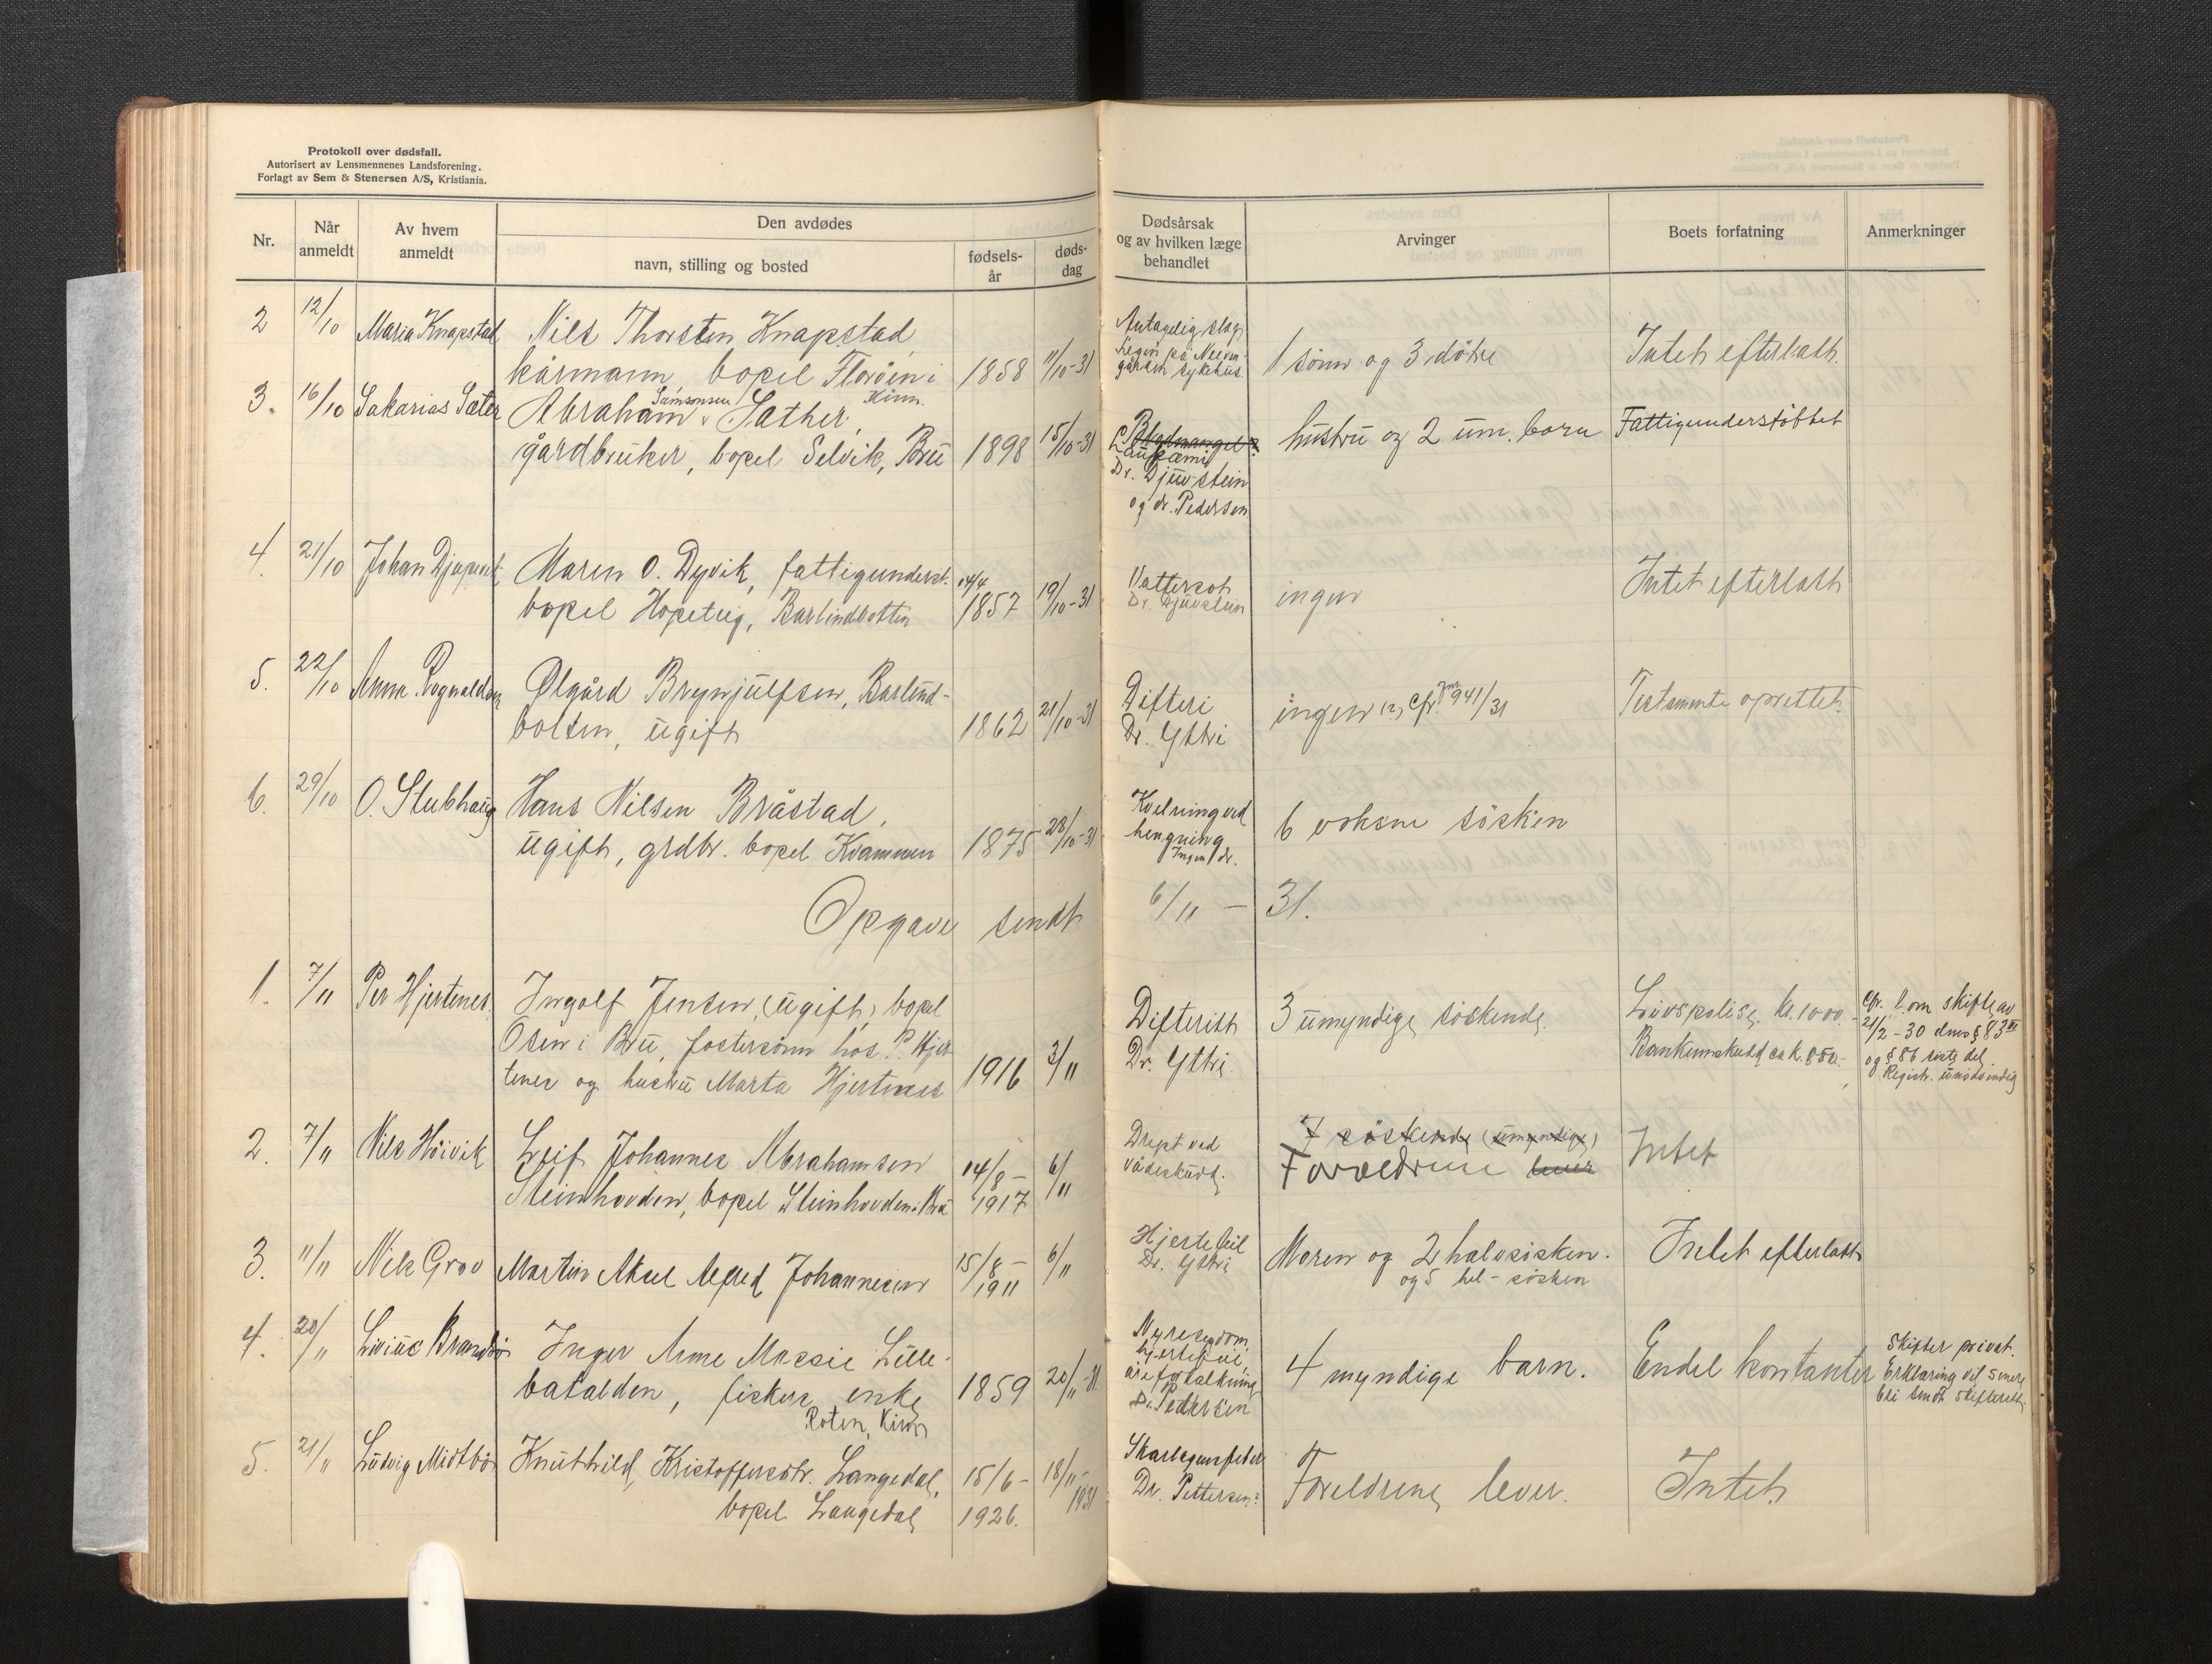 Protokoll over dødsfall.
Autorisert av Lensmennenes Landsforening.
Forlagt av Sem & Stenersen A/S, Kristiania.
Nr.
Når anmeldt
Av hvem anmeldt
Den avdødes
navn, stilling og bosted
fødsels-år
døds-dag
Dødsårsak
og av hvilken læge
behandlet
Arvinger
Boets forfatning
Anmerkninger
2 12/10 Maria Knapstad Nils Thorsten Knapstad, Antagelig slag,
kårmann, bopel Florøen i 1858 11/10-31 Lægen på Neevengården sykehus 1 sønn og 3 døtre Intet efterlatt.
Kinn.
3. 16/10 Sakarias Sæter Abraham Samsonsen Sæther,
gårdbruker, bopel Selvik, Bru 1898 15/10-31 Blodmangel? hustru og 2 um. born Fattigunderstøttet
Leukæmi
Dr. Djuvstein
og dr. Pedersen
4. 21/10 Johan Djupvik Maren O. Dyvik, fattigunderst. 14/4
bopel Hopeteig, Barlindbotten 1857 19/10-31 Vattersot Dr. Djuvstein ingen Intet efterlatt
5. 22/10 Anna Rognaldsen Ølgård Brynjulfsen, Barlind-
botten, ugift 1862 21/10-31 Difteri Dr. Ythri ingen (?) cfr. Jnr 941/31 Testamente oprettet.
6. 29/10 O. Stubhaug Hans Nilsen Bråstad,
ugift, grdbr. bopel Kvammen 1875 28/10-31 Kvelning ved hengning Ingen dr. 6 voksne søsken
Opgave sendt 6/11 - 31.
1. 7/11 Per Hjertenes Ingolf Jensen, (ugift) bopel
Osen i Bru, fostersønn hos P. Hjer-
tenes og hustru Marta Hjertenes 1916 3/11 Difterith Dr. Ythri. 3 umyndige søskende. Livspolise kr. 1000.-
Bankinnskudd ca k. 850.-
cfr. l. om skifte av
21/2-30 dens § 83
og § 86 siste del.
Registr. unødvendig
2. 7/11 Nils Høivik Leif Johannes Abrahamsen 14/8 - 6/11
Steinhovden, bopel Steinhovden i Bru 1917 Drept ved vådeskudd. 7 søskende (umyndige)
Forældrene lever Intet
3. 11/11 Nils Grov Martin Aksel Alfred Johannesen 15/8 - 1911 6/11 Hjertefeil Dr. Ythri Moren og 2 halvsøsken.
og 5 hel-søsken Intet efterlatt
4. 20/11 Livius Brandsø Inger Anne Massie Lille-
batalden, fiskers enke 1859 20/11-31
Roten, Kinn
Nyresygdom,
hjertefeil,
åreforkalkning
Dr. Pedersen
4 myndige barn. Endel kontanter
Skifter privat.
Erklæring vil senere
bli sendt skifteretten
5. 21/11 Ludvig Midtbø Knuthild Kristoffersdtr. Langedal, 15/6 - 18/11-
bopel Langedal, 1926. 1931
Skarlagensfeber Dr. Pettersen Foreldrene lever. Intet